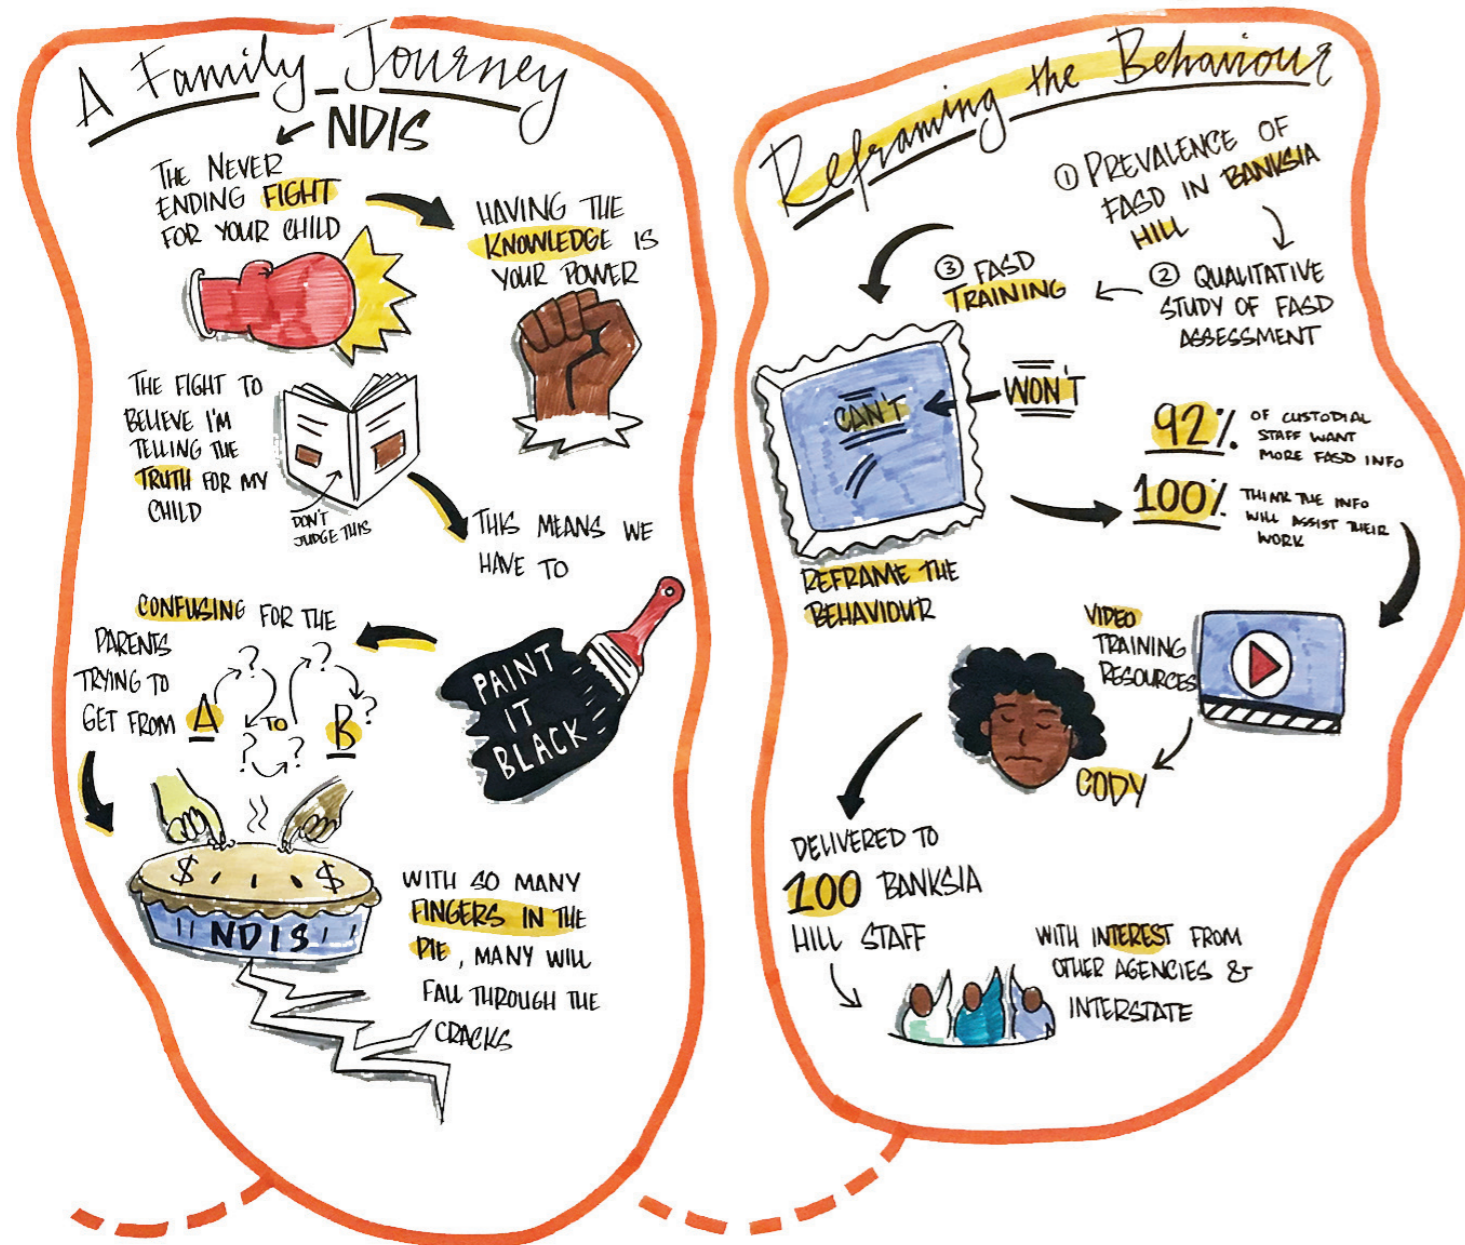 A Family Journey
NDIS
THE NEVER
ENDING FIGHT
FOR YOUR CHILD
HAVING THE
KNOWLEDGE IS
YOUR POWER
THE FIGHT TO
BELIEVE I'M
TELLING THE
TRUTH FOR MY
CHILD
DON'T
JUDGE THIS
THIS MEANS WE
HAVE TO
PAINT
IT
BLACK
CONFUSING FOR THE
PARENTS
TRYING TO
GET FROM A TO B
? ? ?
? ?
$ $
NDIS
WITH SO MANY
FINGERS IN THE
PIE, MANY WILL
FALL THROUGH THE
CRACKS
Reframing the Behaviour
① PREVALENCE OF
FASD IN BANKSIA
HILL
② QUALITATIVE
STUDY OF FASD
ASSESSMENT
③ FASD
TRAINING
CAN'T
WON'T
REFRAME THE
BEHAVIOUR
92% OF CUSTODIAL
STAFF WANT
MORE FASD INFO
100% THINK THE INFO
WILL ASSIST THEIR
WORK
VIDEO
TRAINING
RESOURCES
CODY
DELIVERED TO
100 BANKSIA
HILL STAFF
WITH INTEREST FROM
OTHER AGENCIES &
INTERSTATE